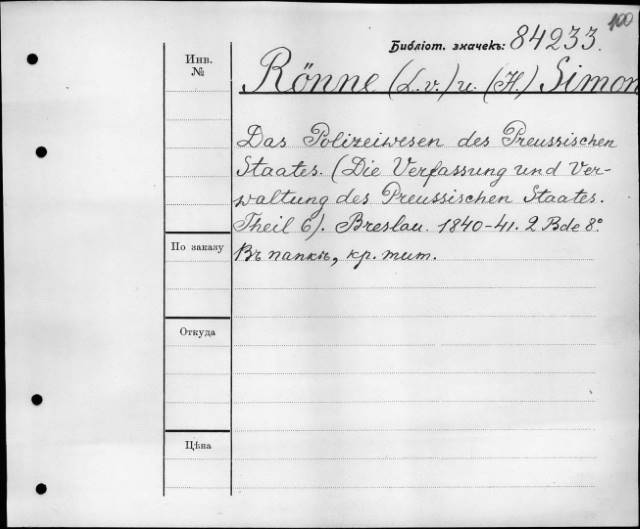 100
Библіот. значекъ: 84233.
Инв.
№
Rönne (L. v.) u. (H.) Simon
Das Polizeiwesen des Preussischen
Staates. (Die Verfassung und Ver-
waltung des Preussischen Staates.
Theil 6). Breslau. 1840-41. 2 Bde 8°
По заказу
Въ папкѣ, кр. тит.
Откуда
Цѣна